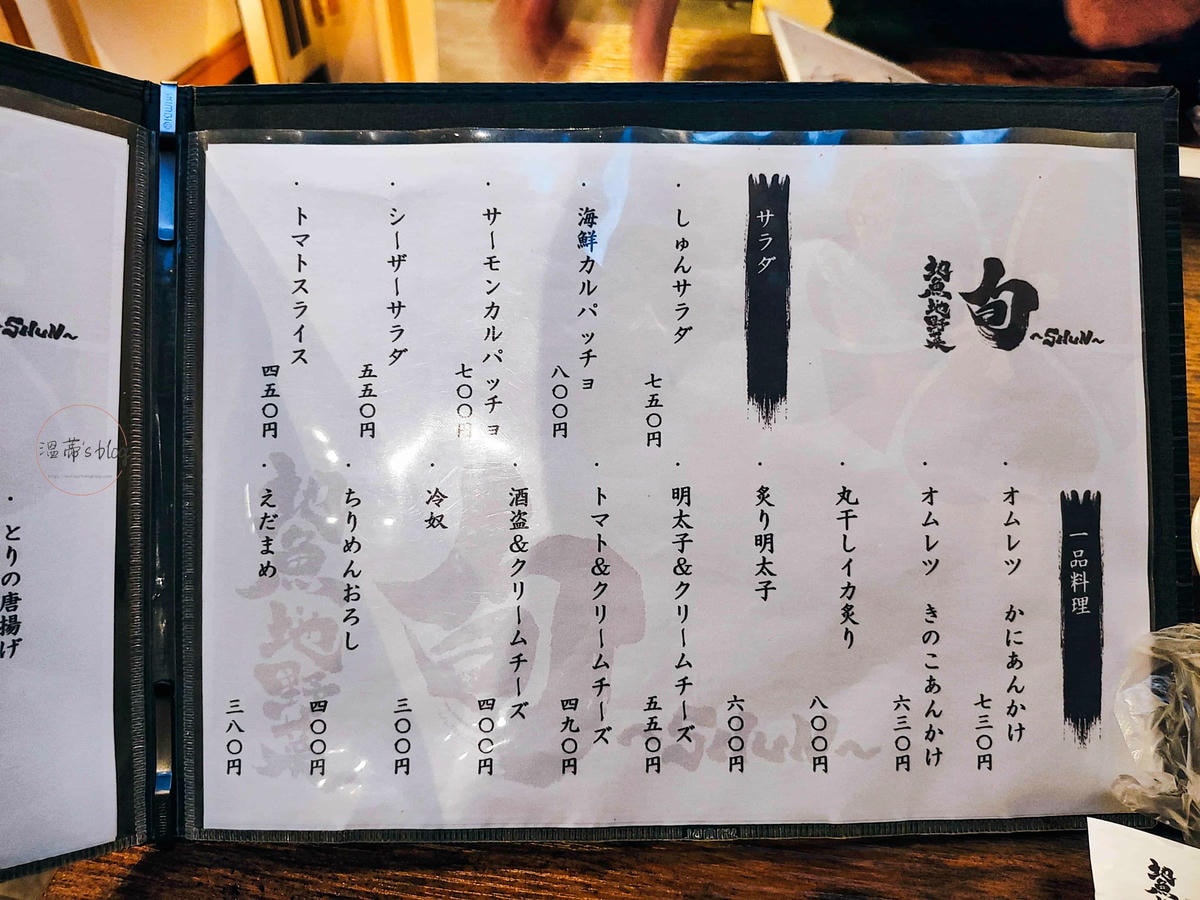 地魚地野菜
旬
~SHUN~
サラダ
・しゅんサラダ
七五〇円
・海鮮カルパッチョ
八〇〇円
・サーモンカルパッチョ
七〇〇円
・シーザーサラダ
五五〇円
・トマトスライス
四五〇円
一品料理
・オムレツ かにあんかけ
七三〇円
・オムレツ きのこあんかけ
六三〇円
・丸干しイカ炙り
八〇〇円
・炙り明太子
六〇〇円
・明太子&クリームチーズ
五五〇円
・トマト&クリームチーズ
四九〇円
・酒盗&クリームチーズ
四〇〇円
・冷奴
三〇〇円
・ちりめんおろし
四〇〇円
・えだまめ
三八〇円
地魚地野菜
旬
~SHUN~
~SHUN~
・とりの唐揚げ
溫蒂's blog